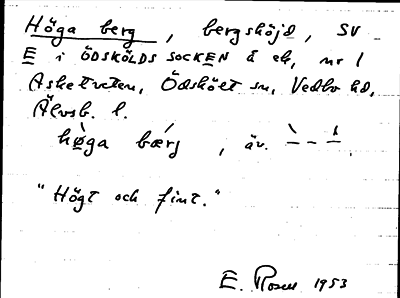 Höga berg, bergshöjd, SV
E i ÖDSKÖLDS SOCKEN å ek, nr 1
Asketveten, Ödskölt sn, Vedbo hd,
Älvsb. l.
hø̀ga bærj, äv. – – –
"Högt och fint."
E. Rosen 1953